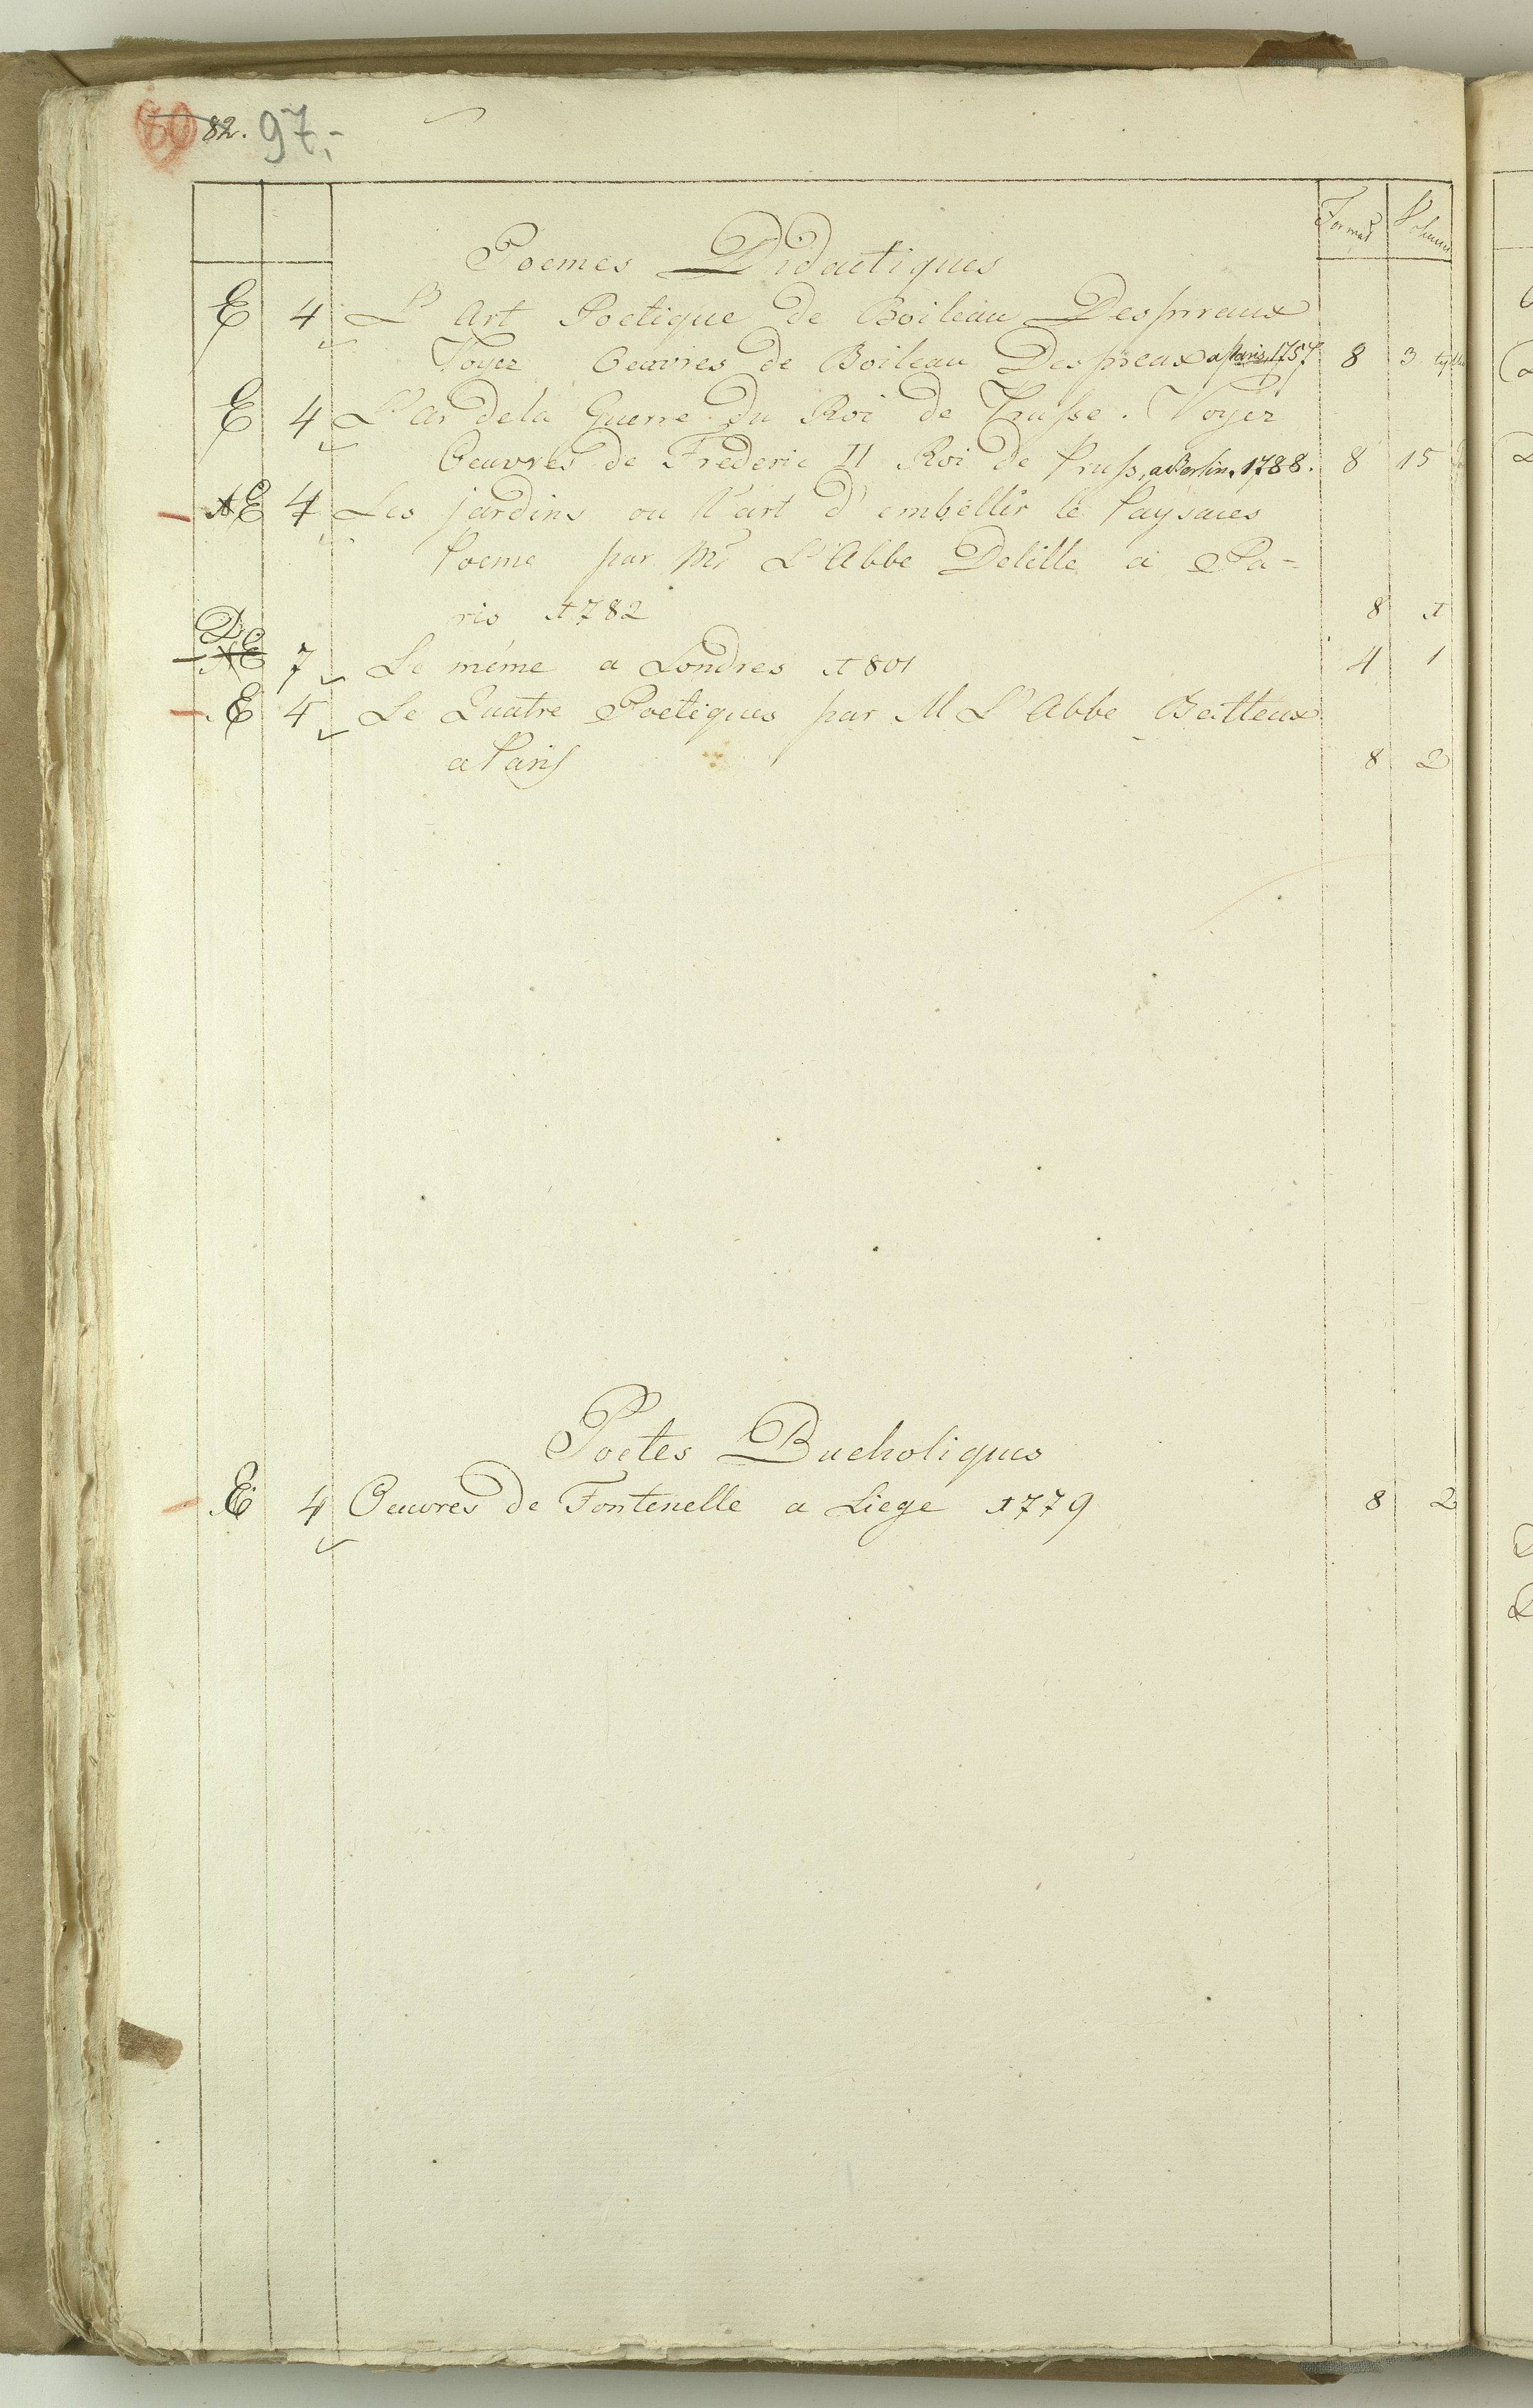 80 82. 97.-
Format Volum
Poemes Didactiques
E 4 L'Art Poetique de Boileau Despreaux
Voyez Oeuvres de Boileau Despreaux a Paris 1757 8 3
E 4 L'Ar dela Guerre du Roi de Prusse. Voyez
Oeuvres de Frederic II Roi de Pruss. a Berlin. 1788. 8 15
AE 4 Les jardins ou l'art d'embellir le Paysaies
Poeme par Mr L'Abbe Delille a Pa-
ris 1782 8 1
D
AE 7 Le méme a Londres 1801 4 1
E 4 Le Quatre Poetiques par M L'Abbe Batteux
a Paris 8 2
Poetes Bucholiques
E 4 Oeuvres de Fontenelle a Liege 1779 8 2